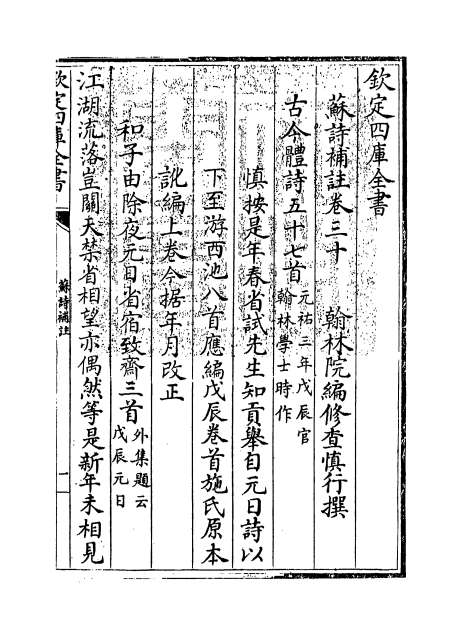 欽定四庫全書
蘇詩補註卷三十　翰林院編修查慎行撰
古今體詩五十七首元祐三年戊辰官
翰林學士時作
慎按是年春省試先生知貢舉自元日詩以
下至游西池八首應編戊辰卷首施氏原本
訛編上卷今据年月改正
和子由除夜元日省宿致齋三首外集題云
戊辰元日
江湖流落豈關天禁省相望亦偶然等是新年未相見
欽定四庫全書
蘇詩補註
一